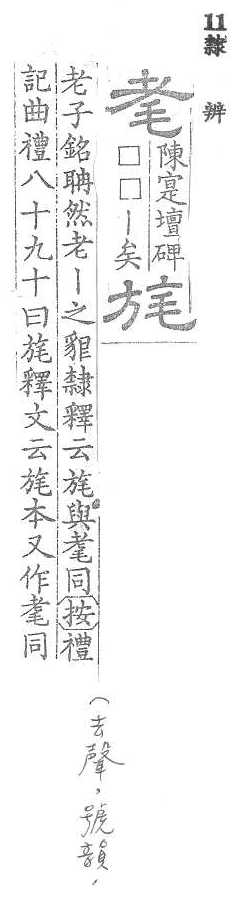 11隸辨
耄
陳寔壇碑
□□丨矣
旄
老子銘聃然老丨之貌隸釋云旄與耄同按禮
記曲禮八十九十曰旄釋文云旄本又作耄同
(去聲，號韻，